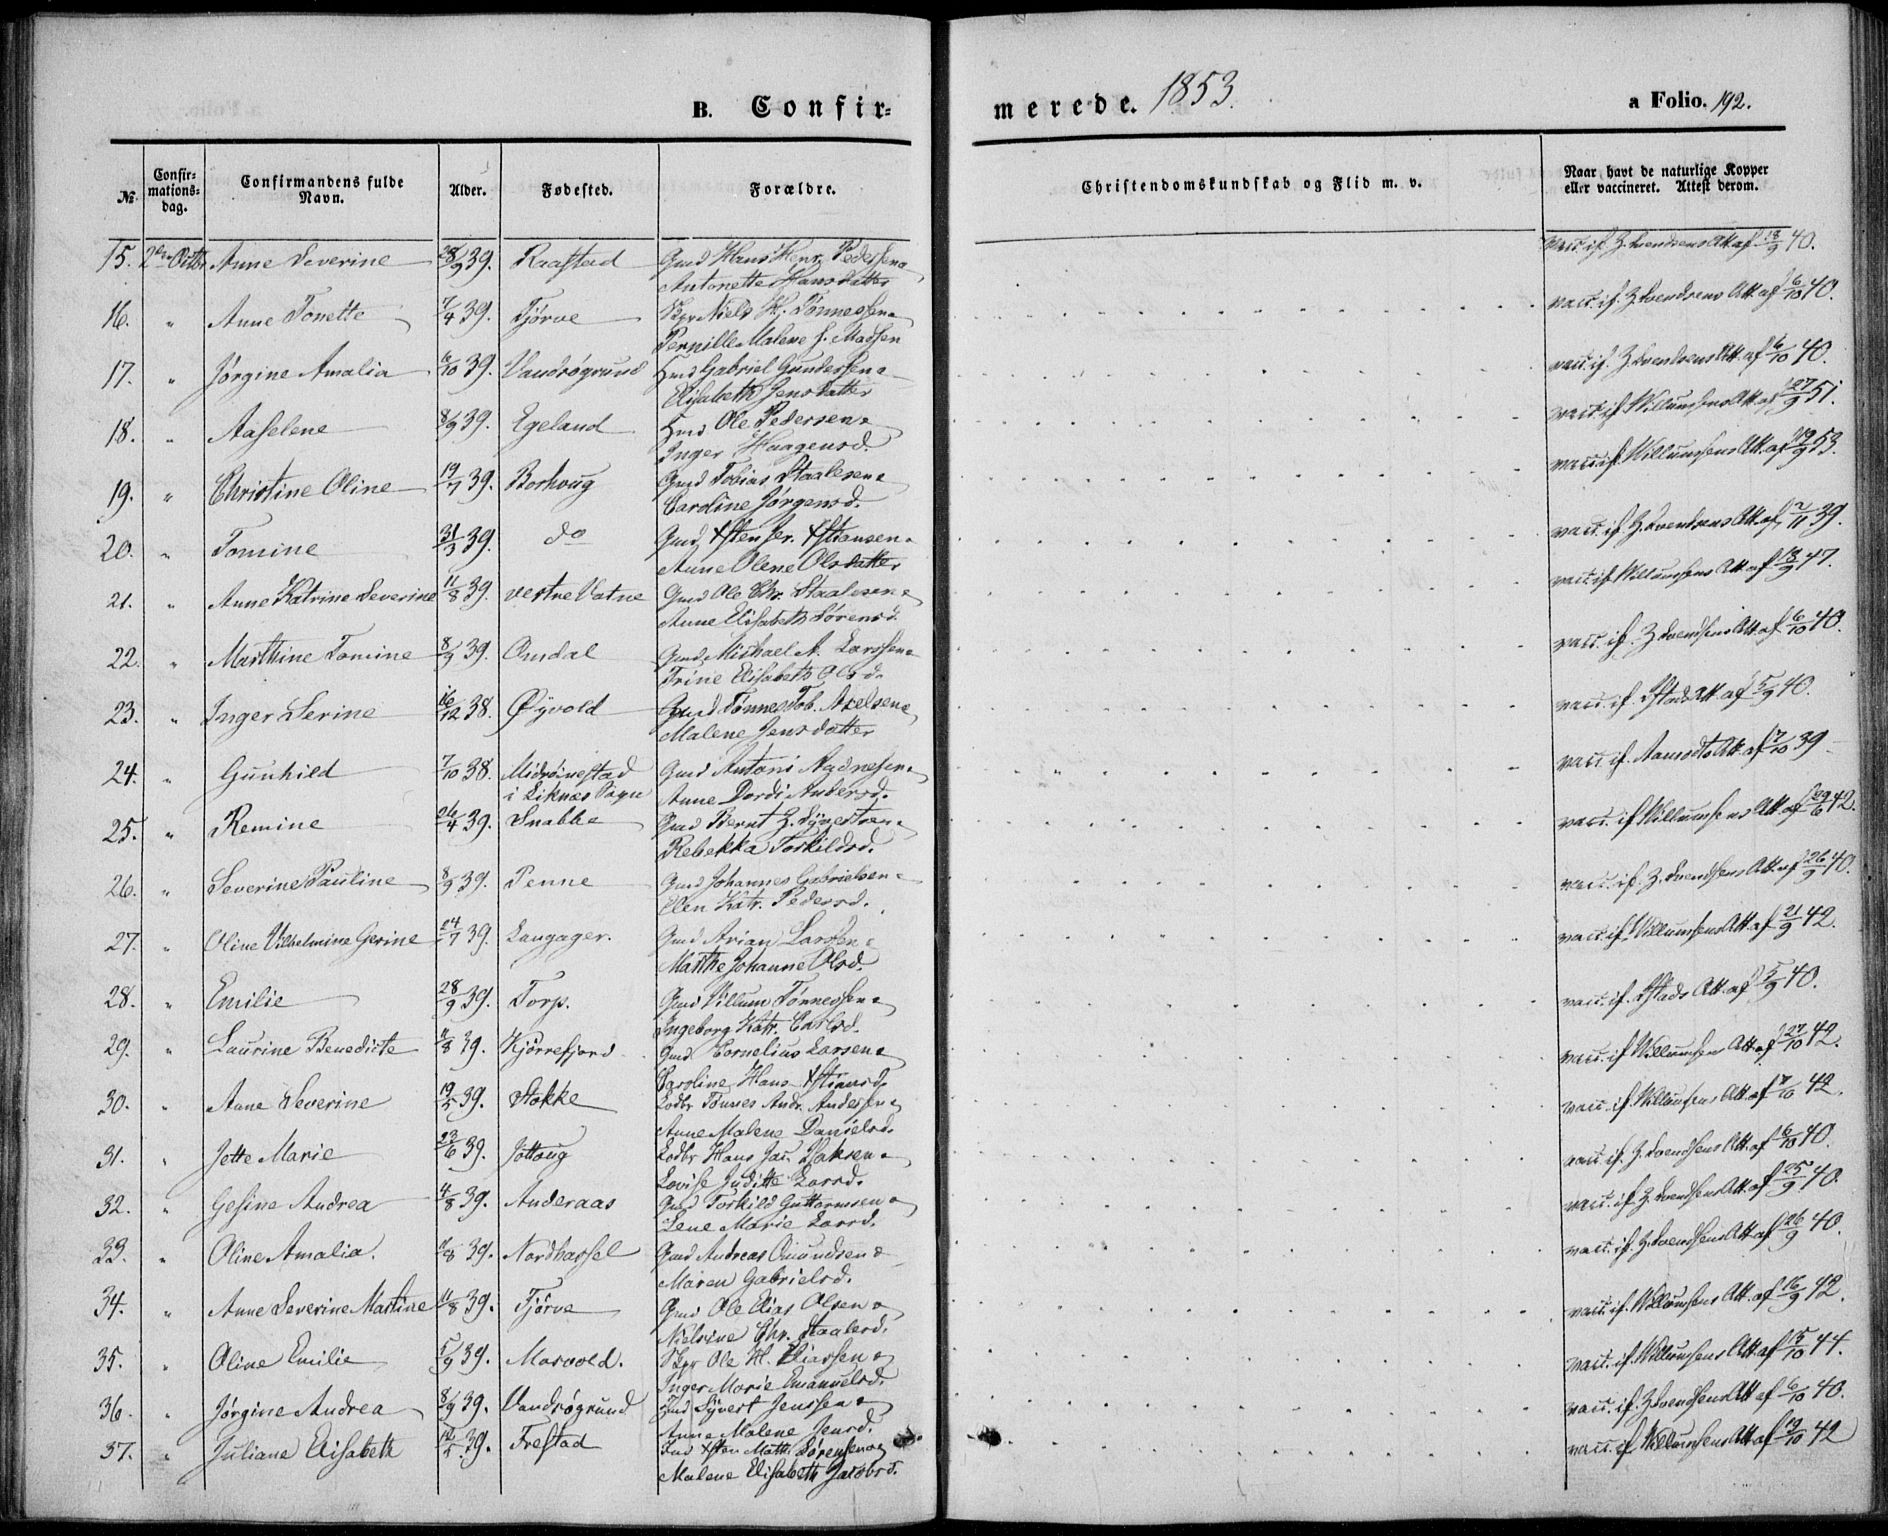 B. Confir=
merede. 1853.
a Folio. 192.
№
Confir-
mations-
dag.
Confirmandens fulde
Navn.
Alder.
Fødested.
Forældre.
Christendomskundskab og Flid m. v.
Naar havt de naturlige Kopper
eller vaccineret. Attest derom.
15. 2den Octbr Anne Severine 28/9 39. Raastad Gmd Hans Henr. Pedersen o
Antonette Hansdatter
vacc. if. Z. Svendsens Att. af 18/9 40.
16. " Anne Tonette 7/4 39. Tjørve Skpr Niels Hj. Tønnessen o
Pernille Malene f. Madsen
vacc. if. Z. Svendsens Att. af 6/10 40.
17. " Jørgine Amalia 6/10 39. Vandrøgrund Hmd Gabriel Gundersen o
Elisabeth Jensdatter
vacc. if. Z. Svendsens Att. af 6/10 40.
18. " Aaselene 8/9 39. Egeland Hmd Ole Pedersen o
Inger Haagensd.
vacc. if. Willumsens Att. af 27/9 51.
19. " Christine Oline 19/7 39. Borhoug Gmd Tobias Staalesen o
Caroline Jørgensd.
vacc. if. Willumsens Att. af 19/9 53.
20. " Tomine 31/3 39. do Gmd Xsten Jer. Xstiansen o
Anne Olene Olsdatter
vacc. if. Z. Svendsens Att. af 7/11 39.
21. " Anne Katrine Severine 11/8 39. vestre Vatne Gmd Ole Chr. Staalesen o
Anne Elisabeth Sørensd.
vacc. if. Willumsens Att. af 13/9 47.
22. " Marthine Tomine 8/9 39. Omdal Gmd Michael A. Larssen o
Trine Elisabeth Olsd.
vacc. if. Z. Svendsens Att. af 6/10 40.
23. " Inger Serine 16/12 38. Øyvold Gmd Tønnes Tob. Axelsen o
Malene Jensdatter
vacc. if. Att. af 5/9 40.
24. " Gunhild 7/10 38. Midrønestad Gmd Antoni Aadnesen o
i Liknes Sogn Anne Dordi Andersd.
vacc. if. Aamodts Att. af 7/10 39
25. " Remine 26/4 39. Snabbe Gmd Bernt Z. Syvertsen o
Rebekka Torkildsd.
vacc. if Willumsens Att. af 29/6 42.
26. " Severine Pauline 8/9 39. Penne Gmd Johannes Gabrielsen o
Elen Katr. Pedersd.
vacc. if. Z. Svendsens Att. af 26/9 40.
27. " Oline Vilhelmine Gerine 24/7 39. Langager. Gmd Arian Larssen o
Marthe Johanne Olsd.
vacc. if. Willumsens Att. af 21/9 42.
28. " Emilie 28/9 39. Torp. Gmd Villum Tønnessen o
Ingeborg Katr. Carlsd.
vacc. if. Att. af 5/9 40.
29. " Laurine Benedicte 11/8 39. Kjørrefjord Gmd Cornelius Larsen o
Caroline Hans Xstiansd.
vacc. if. Willumsens Att. af 27/10 42.
30. " Anne Severine 19/5 39. Stokke Lodbr Tønnes Andr. Andersen o
Anne Malene Danielsd.
vacc. if. Willumsens Att. af 7/10 42.
31. " Jette Marie 23/6 39. Jølloug Lodbr Hans Jac. Isaksen o
Lovise Juditte Larsd.
vacc. if. Z. Svendsens Att. af 6/10 40.
32. " Gesine Andrea 4/8 39. Anderaas Gmd Torkild Guttormsen o
Lene Marie Larsd.
vacc. if. Z. Svendsens Att. af 25/9 40.
33. " Oline Amalia. 11/8 39. Nordhassel Gmd Andreas Omundsen o
Maren Gabrielsd.
vacc. if. Z. Svendsens Att. af 26/9 40.
34. " Anne Severine Martine 11/8 39. Tjørve Gmd Ole Elias Olsen o
Nielsine Chr. Staalesd.
vacc. if. Willumsens Att. af 16/9 42.
35. " Oline Emilie 5/9 39. Marvold. Skpr Ole H. Eliassen o
Inger Marie Emanuelsd.
vacc. if. Willumsens Att. af 15/10 44.
36. " Jørgine Andrea 8/9 39. Vandrøgrund Hmd Syvert Jenssen o
Anne Malene Jensd.
vacc. if. Z. Svendsens Att. af 6/10 40.
37. " Juliane Elisabeth 12/5 39. Frestad Hmd Xsten Math. Sørensen o
Malene Elisabeth Jacobsd.
vacc. if. Willumsens Att. af 19/10 42